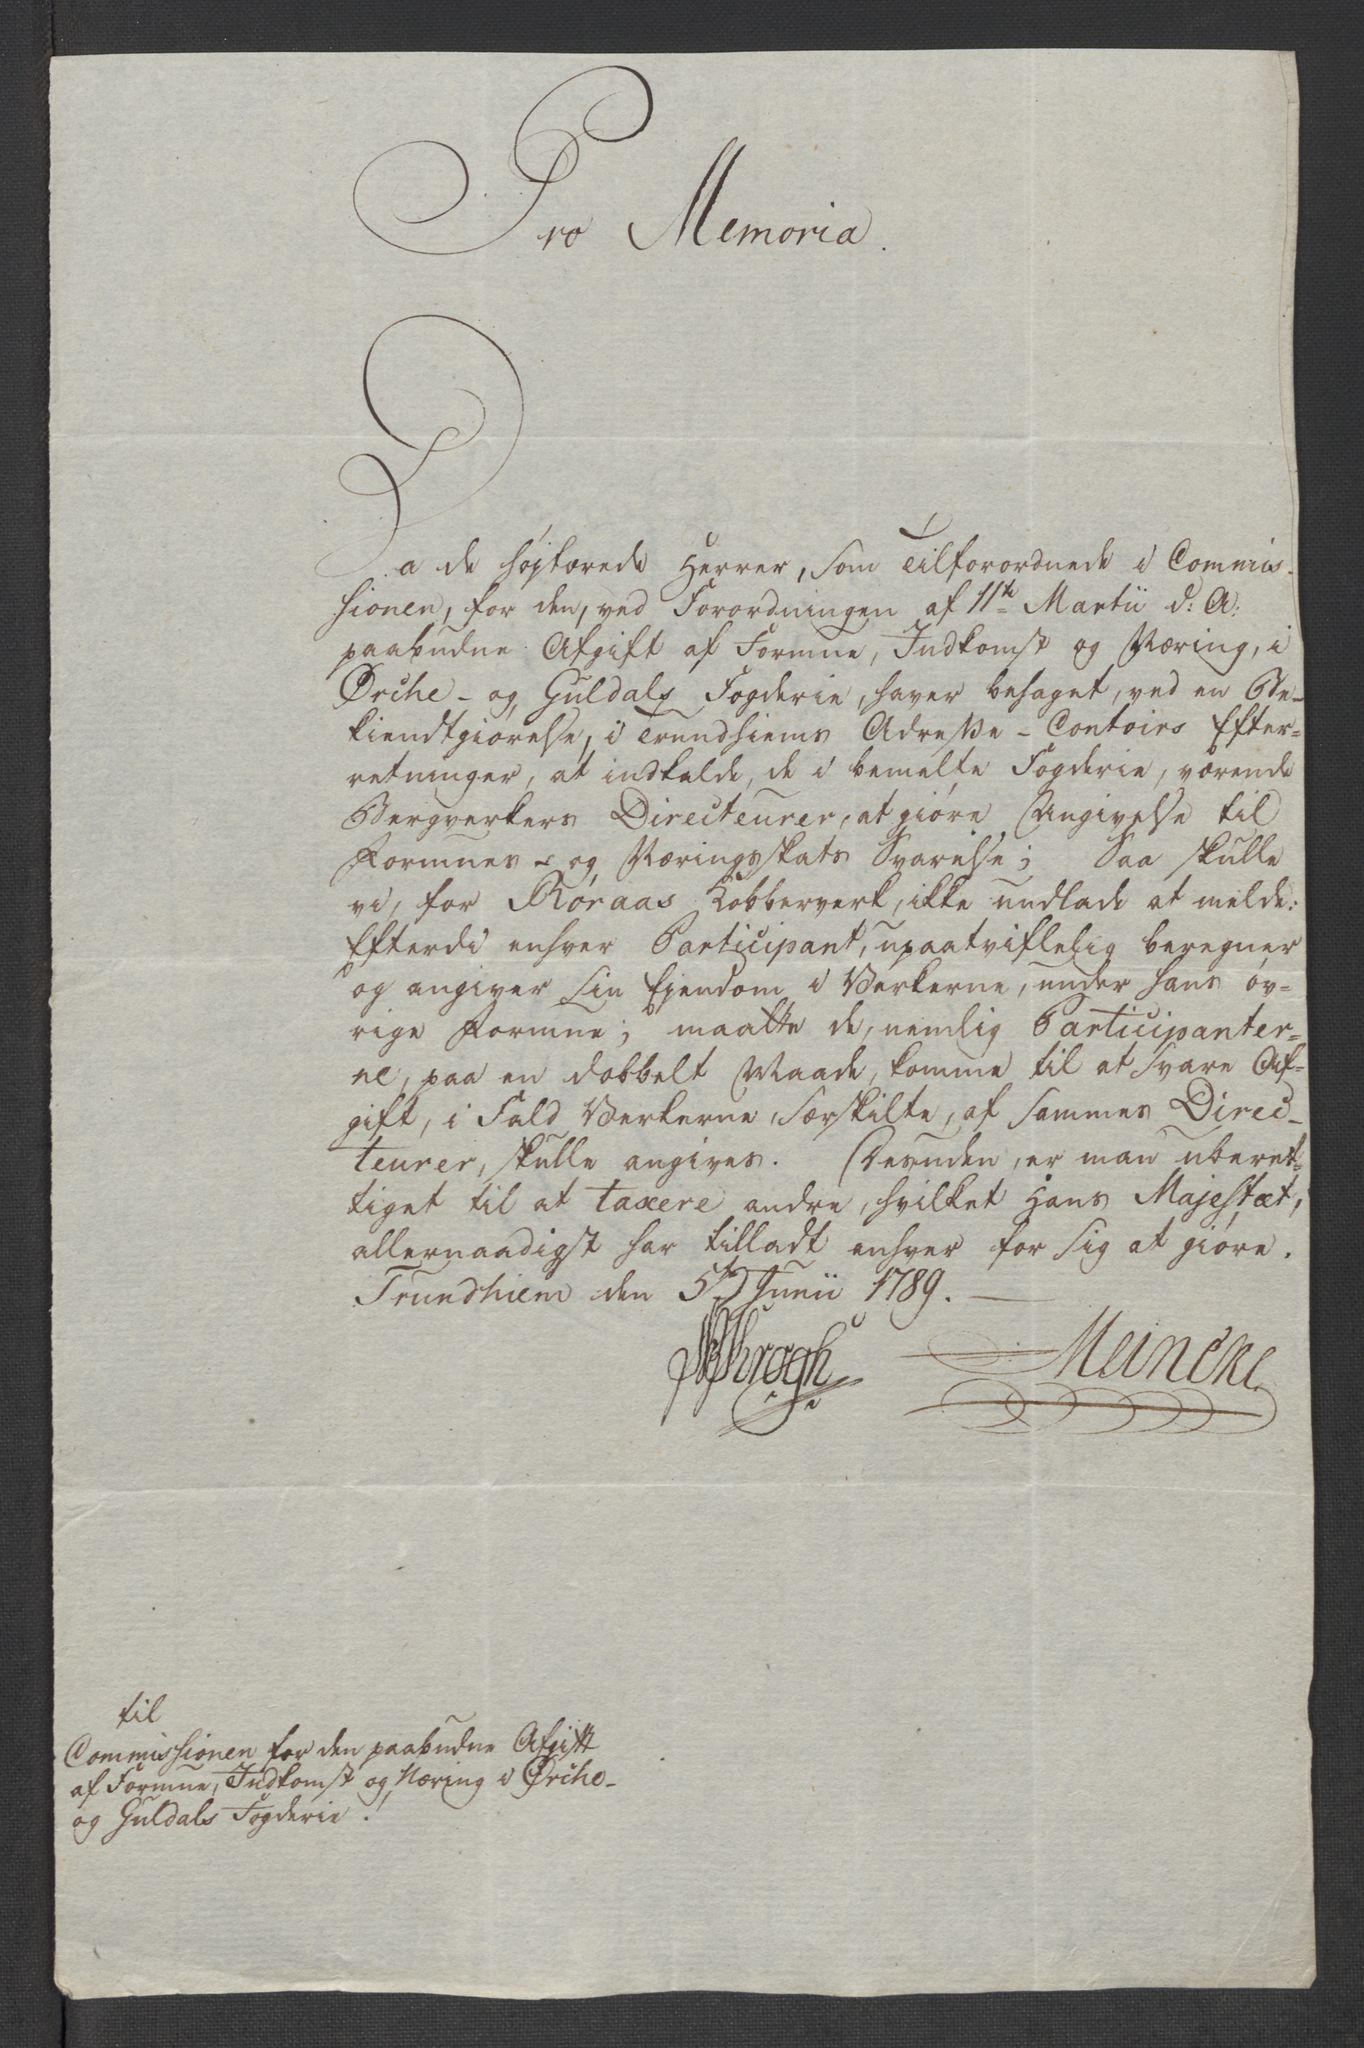 Pro Memoria.
Da de højtærede Herrer, som Tilforordnede i Commis-
sionen, for den, ved Forordningen af 11te Martii d: A:
paabudne Afgift af Formue, Indkomst og Næring, i
Ørche- og Guldals Fogderie, haver behaget, ved en Be-
kiendtgiørelse, i Trundhiems Adresse-Contoirs Efter-
retninger, at indkalde, de i bemelte Fogderie, værende
Bergverkers Directeurer, at giøre Angivelse til
Formues- og Næringsskats Svarelse; Saa skulle
vi, for Røraas Kobberverk, ikke undlade at melde:
Efterdi enhver Participant, upaatviflelig beregner
og angiver sin Ejendom i Verkerne, under hans øv-
rige Formue; maatte de, nemlig Participanter-
ne, paa en dobbelt Maade, komme til at svare Af-
gift, i Fald Verkerne, særskilte, af sammes Direc-
teurer, skulle angives. Desuden, er man uberet-
tiget til at taxere andre, hvilket Hans Majestæt,
allernaadigst har tilladt enhver for sig at giøre.
Trundhiem den 5te Junii 1789.
Krogh Meincke
til
Commissionen for den paabudne Afgift
af Formue, Indkomst og Næring i Ørche-
og Guldals Fogderie.